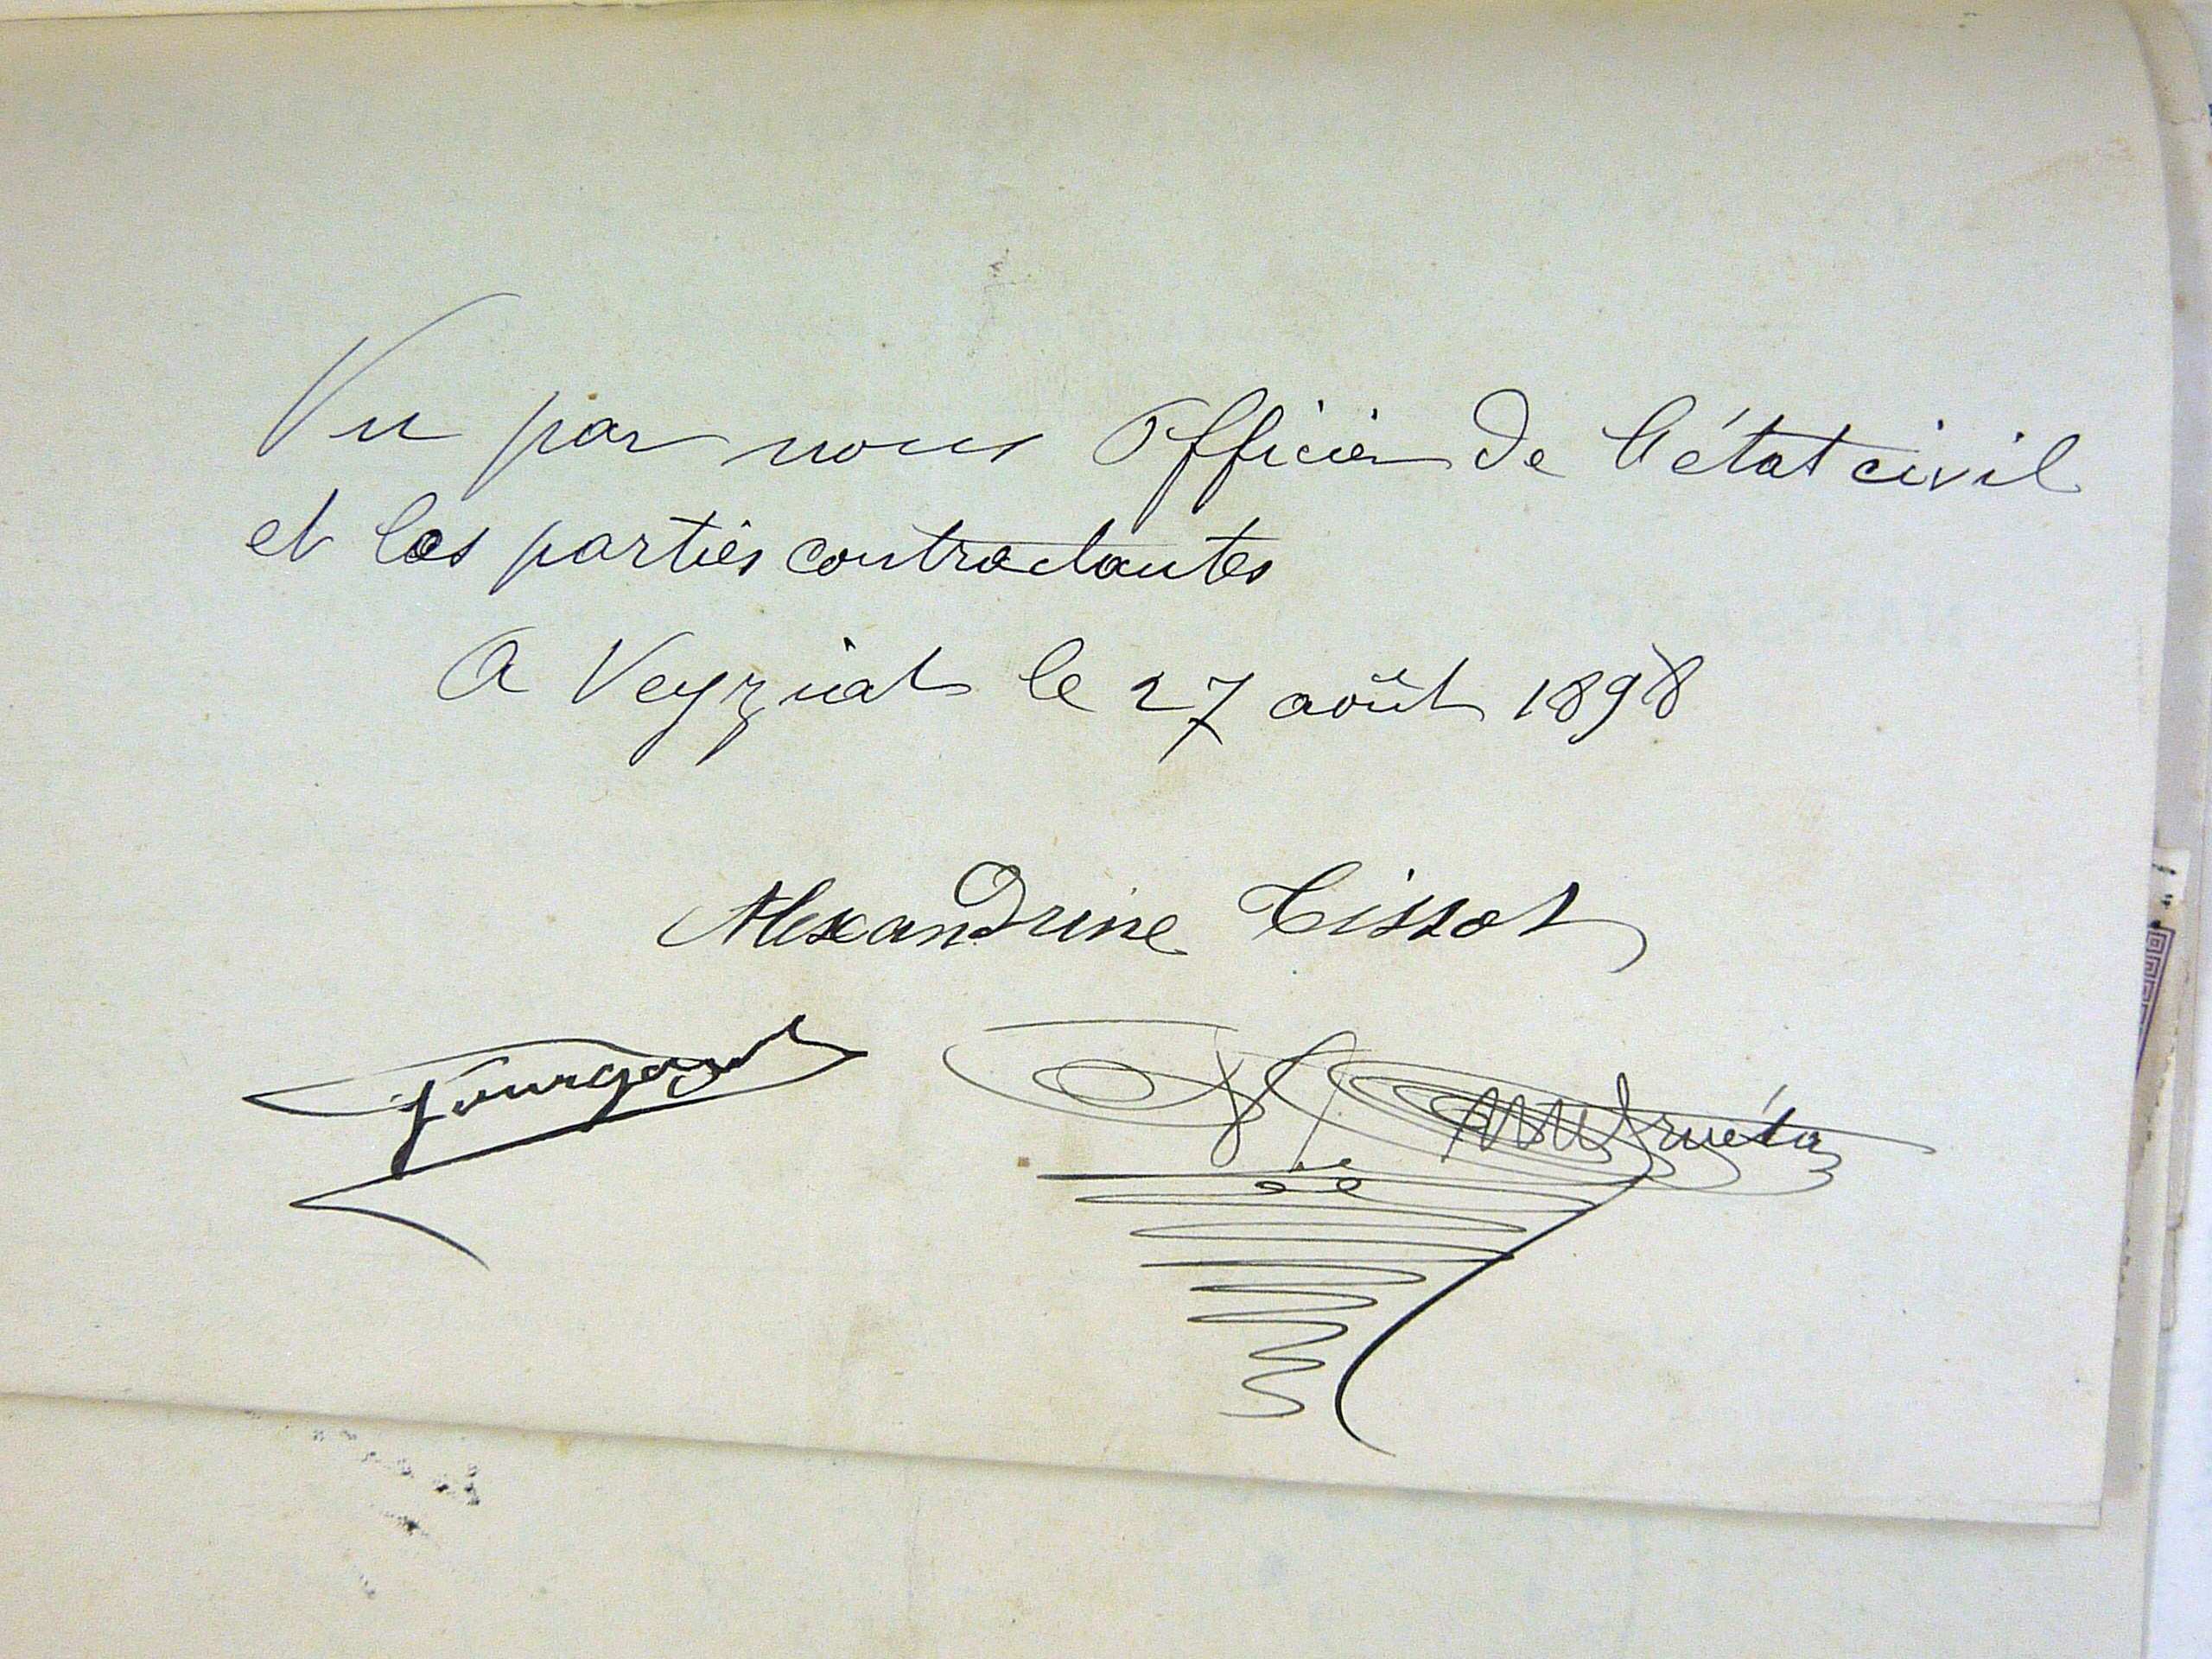 Vu par nous Officier de l'état civil
et les parties contractantes
A Veyziat le 27 août 1898
Alexandrine Tissot